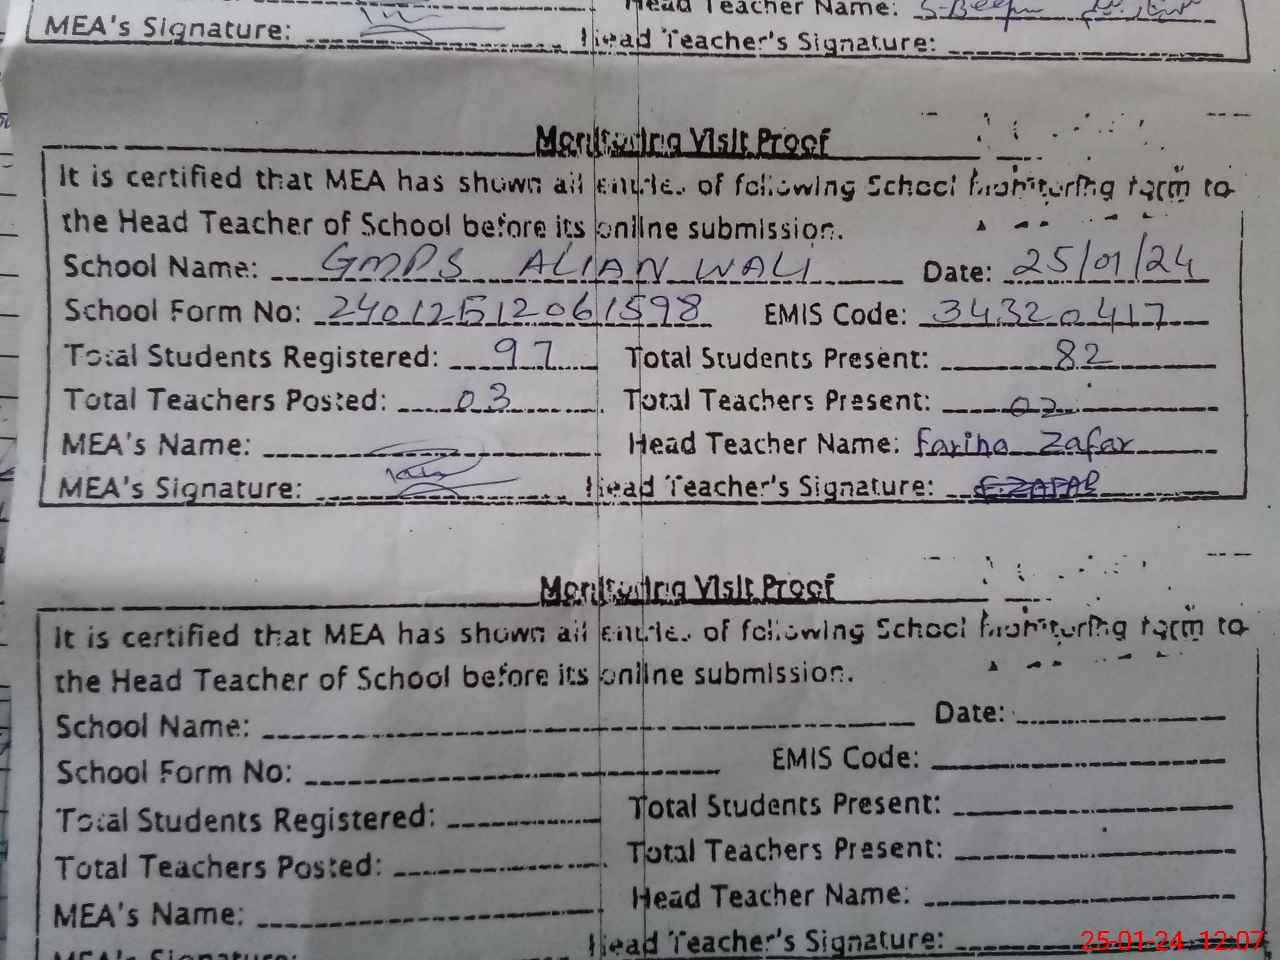 Head Teacher Name:
MEA's Signature: Head Teacher's Signature:
Monitoring Visit Proof
It is certified that MEA has shown all entries of following School Monitoring form to
the Head Teacher of School before its online submission.
School Name: GMPS ALIAN WALI Date: 25/01/24
School Form No: 24012512061598 EMIS Code: 34320417
Total Students Registered: 97 Total Students Present: 82
Total Teachers Posted: 03 Total Teachers Present: 02
MEA's Name: Head Teacher Name: Fariha Zafar
MEA's Signature: Head Teacher's Signature: F.ZAFAR
Monitoring Visit Proof
It is certified that MEA has shown all entries of following School Monitoring form to
the Head Teacher of School before its online submission.
School Name: Date:
School Form No: EMIS Code:
Total Students Registered: Total Students Present:
Total Teachers Posted: Total Teachers Present:
MEA's Name: Head Teacher Name:
MEA's Signature: Head Teacher's Signature:
25-01-24 12:07